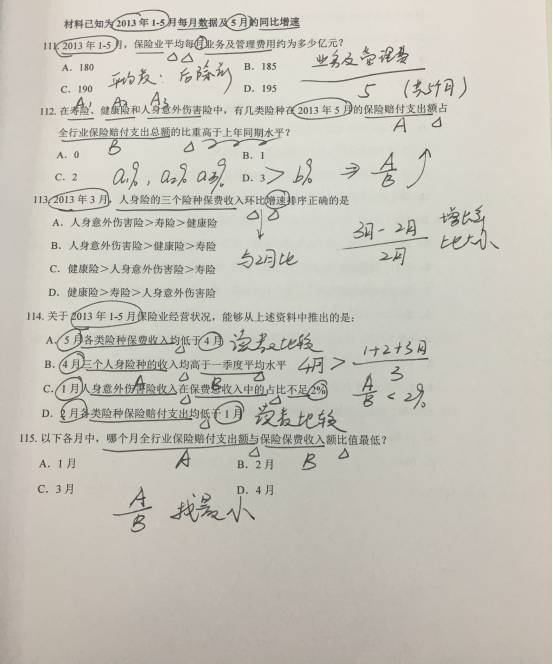 材料已知为2013年1-5月每月数据及5月的同比增速
111.2013年1-5月，保险业平均每月业务及管理费用约为多少亿元？
A．180 B．185 业务及管理费
C．190 平均数：后除前 D．195 5 (共5个月)
A₁ A₂ A₃
112.在寿险、健康险和人身意外伤害险中，有几类险种在2013年5月的保险赔付支出额占 A
全行业保险赔付支出总额的比重高于上年同期水平？
A．0 B B．1
C．2 a₁%，a₂% a₃% D．3 > b% ⇒ A/B ↑
113.2013年3月，人身险的三个险种保费收入环比增速排序正确的是
A．人身意外伤害险＞寿险＞健康险 3月-2月 增长率
B．人身意外伤害险＞健康险＞寿险 与2月比 2月 比大小
C．健康险＞人身意外伤害险＞寿险
D．健康险＞寿险＞人身意外伤害险
114.关于2013年1-5月保险业经营状况，能够从上述资料中推出的是：
A．5月各类险种保费收入均低于4月 读数比较
B．4月三个人身险种的收入均高于一季度平均水平 4月 > 1+2+3月
3
C．1月人身意外伤害险收入在保费总收入中的占比不足2% A/B < 2%
A B
D．2月各类险种保险赔付支出均低于1月 读数比较
115.以下各月中，哪个月全行业保险赔付支出额与保险保费收入额比值最低？
A．1月 A B．2月 B
C．3月 D．4月
A/B 找最小